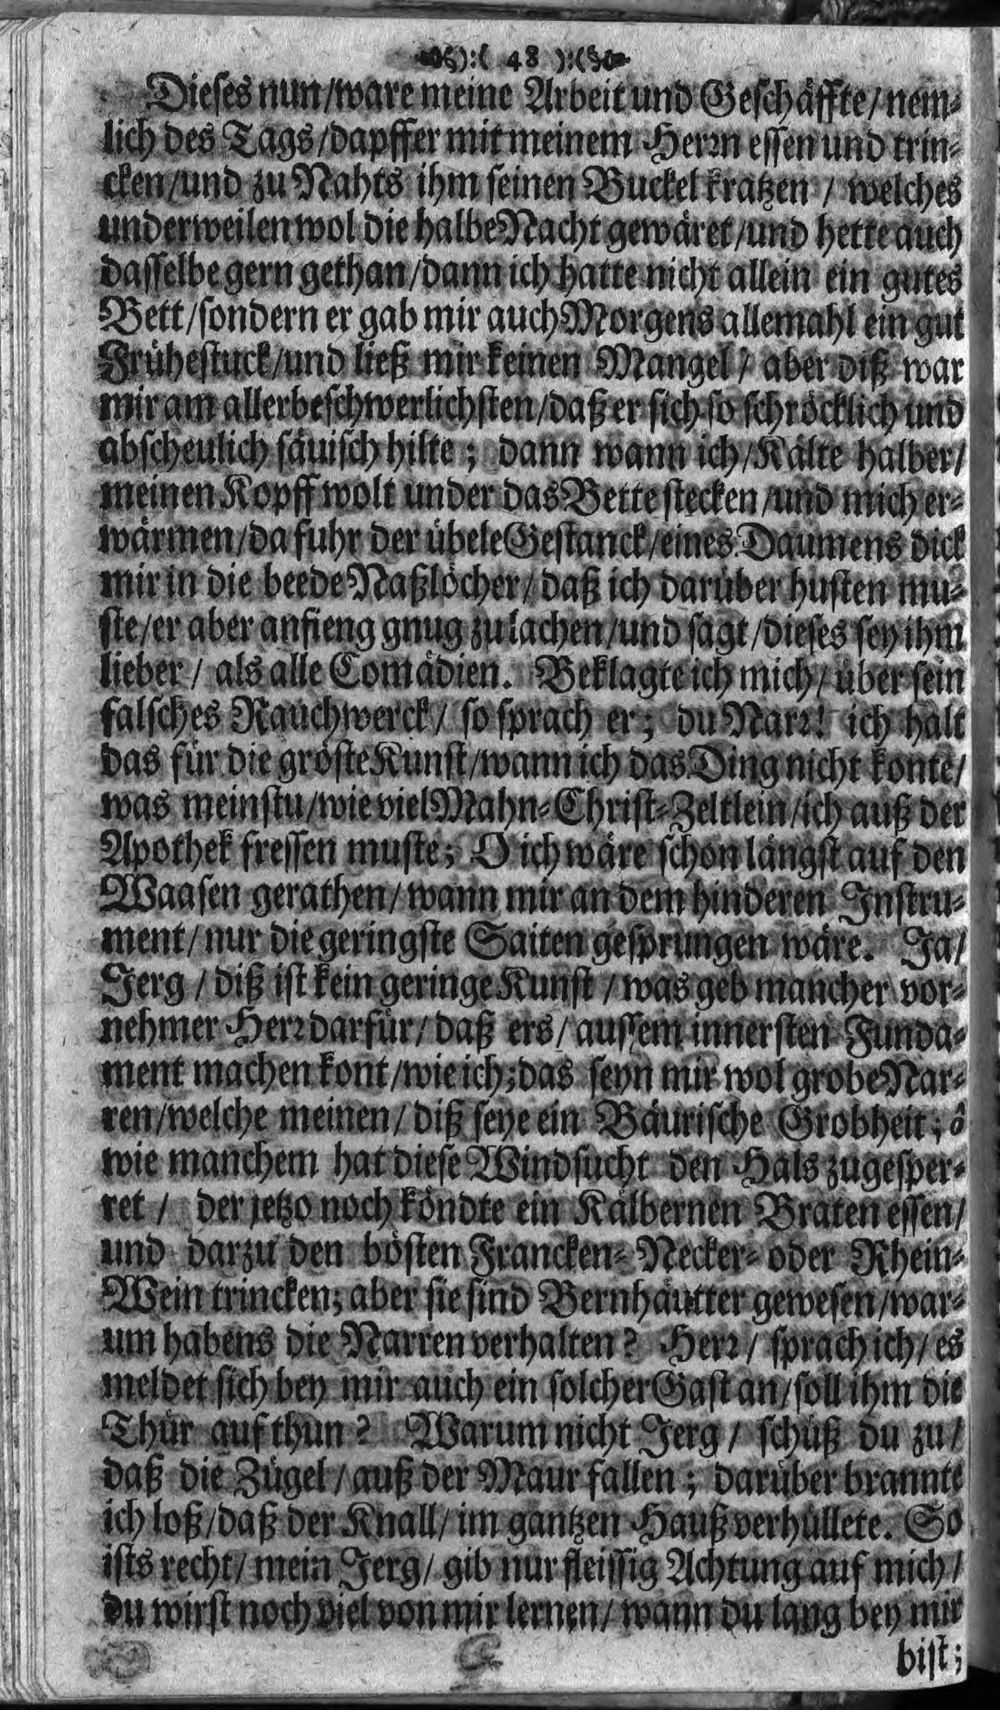 ):( 48 ):(
Dieses nun/ware meine Arbeit und Geschäffte/nem-
lich des Tags/dapffer mit meinem Herrn essen und trin-
cken/und zu Nahts ihm seinen Buckel kratzen / welches
underweilen wol die halbe Nacht gewäret/und hette auch
dasselbe gern gethan/dann ich hatte nicht allein ein gutes
Bett/sondern er gab mir auch Morgens allemahl ein gut
Frühestuck/und ließ mir keinen Mangel/ aber diß war
mir am allerbeschwerlichsten/daß er sich so schröcklich und
abscheulich säuisch hilte; dann wann ich/Kälte halber/
meinen Kopff wolt under das Bette stecken/und mich er-
wärmen/da fuhr der übele Gestanck/eines Daumens dick
mir in die beede Naßlöcher/ daß ich darüber husten mu-
ste/er aber anfieng gnug zu lachen/und sagt/dieses sey ihm
lieber/ als alle Comädien. Beklagte ich mich/ über sein
falsches Rauchwerck/ so sprach er; du Narr! ich halt
das für die gröste Kunst/wann ich das Ding nicht konte/
was meinstu/wie viel Mahn-Christ-Zeltlein/ich auß der
Apothek fressen muste; O ich wäre schon längst auf den
Waasen gerathen/wann mir an dem hinderen Instru-
ment/nur die geringste Saiten gesprungen wäre. Ja/
Jerg / diß ist kein geringe Kunst / was geb mancher vor-
nehmer Herr darfür/daß ers/ aussem innersten Funda-
ment machen kont/wie ich; das seyn mir wol grobe Nar-
ren/welche meinen/ diß seye ein Bäurische Grobheit; ô
wie manchem hat diese Windsucht den Hals zugesper-
ret / der jetzo noch köndte ein Kälbernen Braten essen/
und darzu den bösten Francken- Necker- oder Rhein-
Wein trincken; aber sie sind Bernhäutter gewesen/war-
um habens die Narren verhalten? Herr/ sprach ich/ es
meldet sich bey mir auch ein solcher Gast an/soll ihm die
Thür auf thun? Warum nicht Jerg/ schüß du zu/
daß die Zügel/auß der Maur fallen; darüber brannte
ich loß/daß der Knall/ im gantzen Hauß verhüllete. So
ists recht/ mein Jerg/ gib nur fleissig Achtung auf mich/
du wirst noch viel von mir lernen/ wann du lang bey mir
bist;